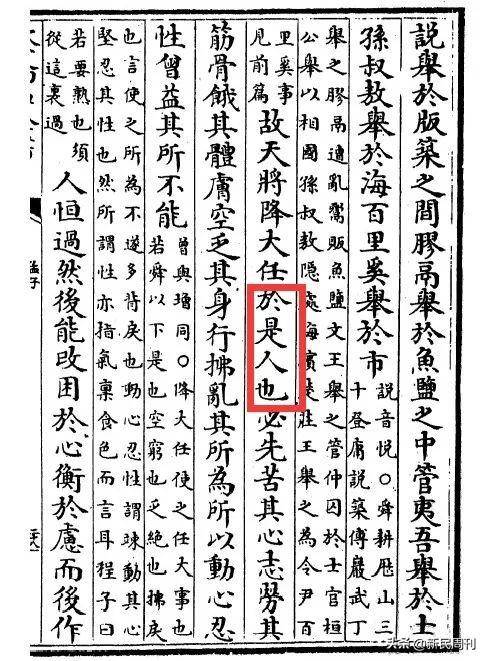 說舉於版築之間膠鬲舉於魚鹽之中管夷吾舉於士
孫叔敖舉於海百里奚舉於市
說音悅○舜耕歷山三
十登庸說築傅巖武丁
舉之膠鬲遭亂鬻販魚鹽文王舉之管仲囚於士官桓
公舉以相國孫叔敖隱處海濱楚莊王舉之為令尹百
里奚事
見前篇
故天將降大任於是人也必先苦其心志勞其
筋骨餓其體膚空乏其身行拂亂其所為所以動心忍
性曾益其所不能
曾與增同○降大任使之任大事也
若舜以下是也空窮也乏絕也拂戾
也言使之所為不遂多背戾也動心忍性謂竦動其心
堅忍其性也然所謂性亦指氣稟食色而言耳程子曰
若要熟也須
從這裏過
人恒過然後能改困於心衡於慮而後作
孟子
头条@新民周刊